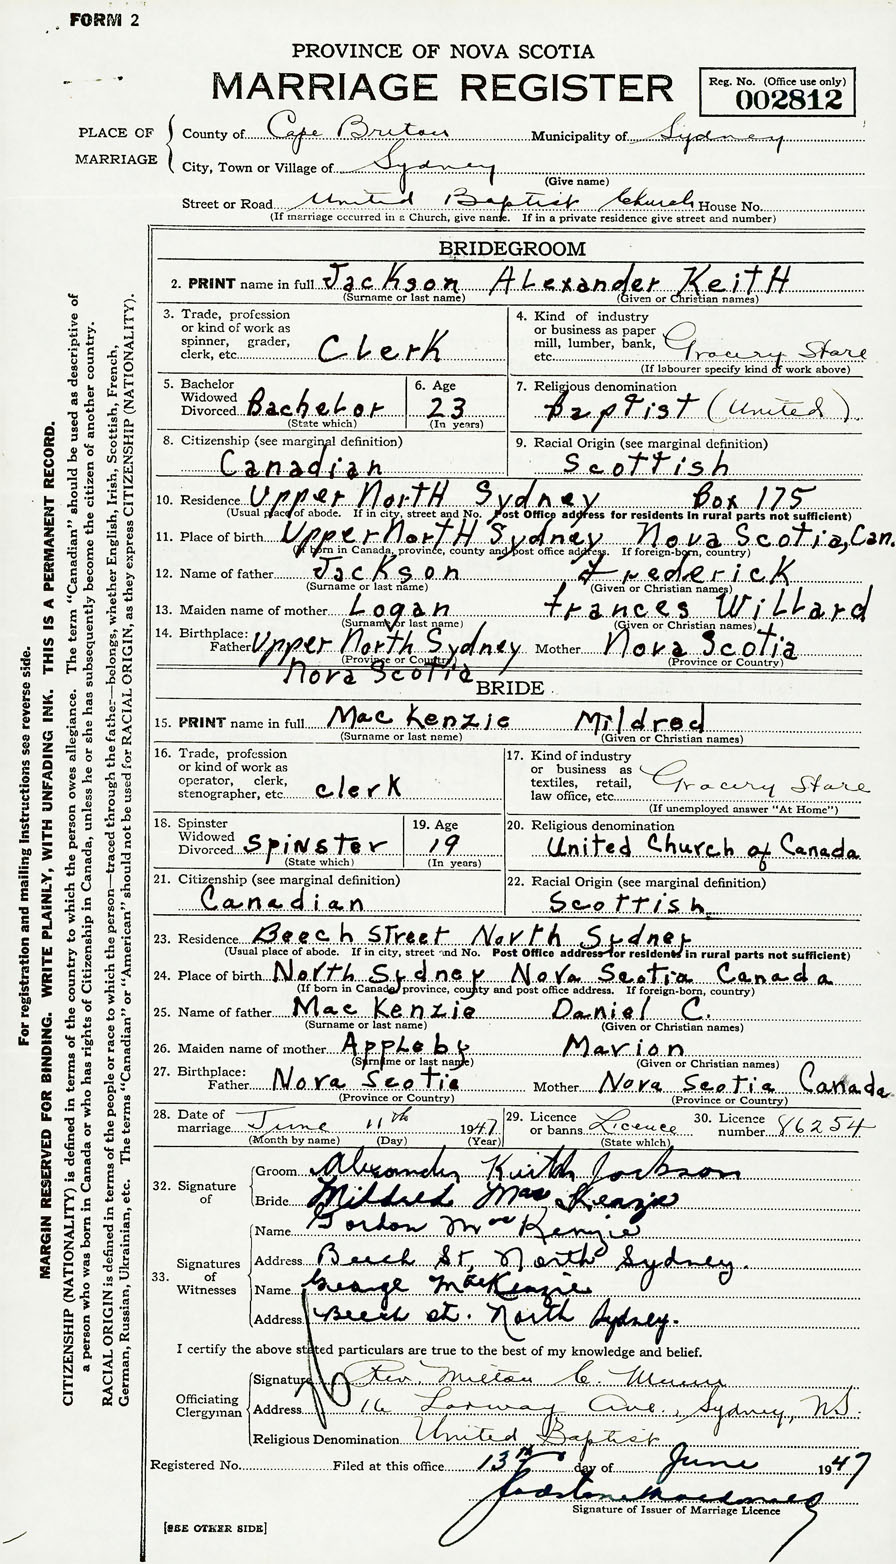 FORM 2
PROVINCE OF NOVA SCOTIA
MARRIAGE REGISTER
Reg. No. (Office use only)
002812
PLACE OF MARRIAGE
County of Cape Breton Municipality of Sydney
City, Town or Village of Sydney
(Give name)
Street or Road United Baptist Church House No.
(If marriage occurred in a Church, give name. If in a private residence give street and number)
BRIDEGROOM
2. PRINT name in full Jackson Alexander Keith
(Surname or last name) (Given or Christian names)
3. Trade, profession or kind of work as spinner, grader, clerk, etc. Clerk
4. Kind of industry or business as paper mill, lumber, bank, etc. Grocery Store
(If labourer specify kind of work above)
5. Bachelor Widowed Divorced Bachelor
(State which)
6. Age 23
(In years)
7. Religious denomination
Baptist (United)
8. Citizenship (see marginal definition)
Canadian
9. Racial Origin (see marginal definition)
Scottish
10. Residence Upper North Sydney Box 175
(Usual place of abode. If in city, street and No. Post Office address for residents in rural parts not sufficient)
11. Place of birth Upper North Sydney Nova Scotia, Can.
(If born in Canada, province, county and post office address. If foreign-born, country)
12. Name of father Jackson Frederick
(Surname or last name) (Given or Christian names)
13. Maiden name of mother Logan Frances Willard
(Surname or last name) (Given or Christian names)
14. Birthplace: Father Upper North Sydney Mother Nova Scotia
(Province or Country) (Province or Country)
Nova Scotia
BRIDE
15. PRINT name in full MacKenzie Mildred
(Surname or last name) (Given or Christian names)
16. Trade, profession or kind of work as operator, clerk, stenographer, etc. clerk
17. Kind of industry or business as textiles, retail, law office, etc. Grocery Store
(If unemployed answer "At Home")
18. Spinster Widowed Divorced Spinster
(State which)
19. Age 19
(In years)
20. Religious denomination
United Church of Canada
21. Citizenship (see marginal definition)
Canadian
22. Racial Origin (see marginal definition)
Scottish
23. Residence Beech Street North Sydney
(Usual place of abode. If in city, street and No. Post Office address for residents in rural parts not sufficient)
24. Place of birth North Sydney Nova Scotia Canada
(If born in Canada, province, county and post office address. If foreign-born, country)
25. Name of father MacKenzie Daniel C.
(Surname or last name) (Given or Christian names)
26. Maiden name of mother Appleby Marion
(Surname or last name) (Given or Christian names)
27. Birthplace: Father Nova Scotia Mother Nova Scotia Canada
(Province or Country) (Province or Country)
28. Date of marriage June 11th 1947
(Month by name) (Day) (Year)
29. Licence or banns Licence
(State which)
30. Licence number 86254
32. Signature of
Groom Alexander Keith Jackson
Bride Mildred MacKenzie
33. Signatures of Witnesses
Name Gordon MacKenzie
Address Beech St, North Sydney.
Name George MacKenzie
Address Beech St. North Sydney.
I certify the above stated particulars are true to the best of my knowledge and belief.
Officiating Clergyman
Signature Rev. Milton C.
Address 16 Ave., Sydney, N.S.
Religious Denomination United Baptist
Registered No. Filed at this office 13th day of June 1947
Signature of Issuer of Marriage Licence
[SEE OTHER SIDE]
For registration and mailing instructions see reverse side.
MARGIN RESERVED FOR BINDING. WRITE PLAINLY, WITH UNFADING INK. THIS IS A PERMANENT RECORD.
CITIZENSHIP (NATIONALITY) is defined in terms of the country to which the person owes allegiance. The term "Canadian" should be used as descriptive of
a person who was born in Canada or who has rights of Citizenship in Canada, unless he or she has subsequently become the citizen of another country.
RACIAL ORIGIN is defined in terms of the people or race to which the person—traced through the father—belongs, whether English, Irish, Scottish, French,
German, Russian, Ukrainian, etc. The terms "Canadian" or "American" should not be used for RACIAL ORIGIN, as they express CITIZENSHIP (NATIONALITY).